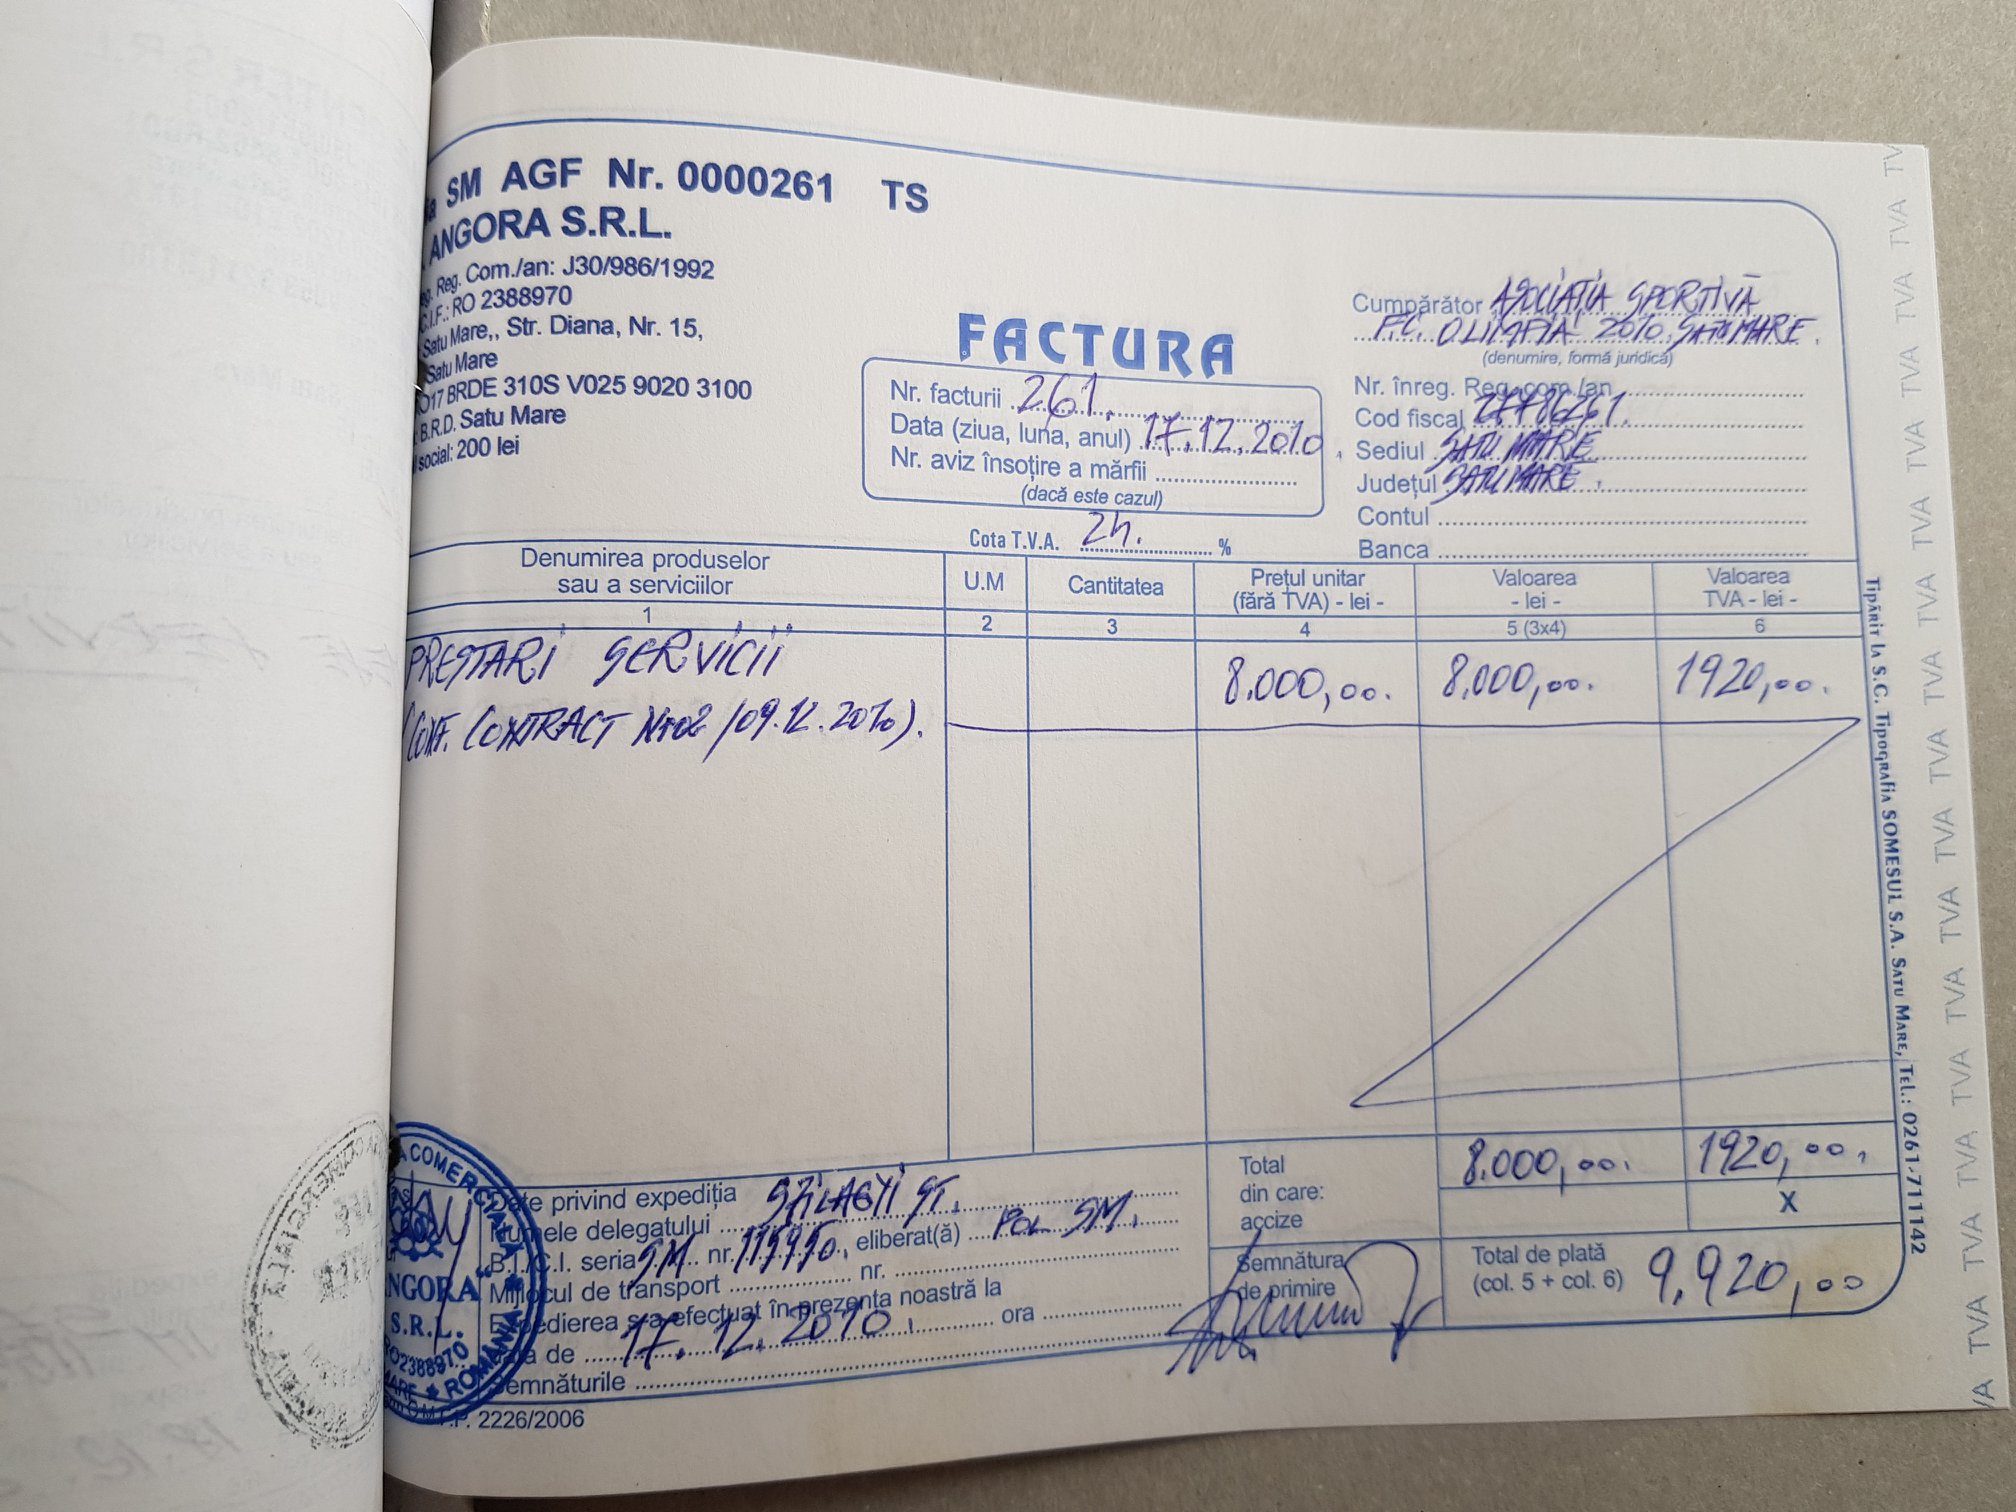 SM AGF Nr. 0000261 TS
ANGORA S.R.L.
Reg. Com./an: J30/986/1992
C.I.F.: RO 2388970
Satu Mare,, Str. Diana, Nr. 15,
Satu Mare
BRDE 310S V025 9020 3100
B.R.D. Satu Mare
social: 200 lei
FACTURA
Nr. facturii 261.
Data (ziua, luna, anul) 17.12.2010
Nr. aviz însoțire a mărfii
(dacă este cazul)
Cota T.V.A. 24. %
Cumpărător ASOCIAȚIA SPORTIVĂ
F.C. OLIMPIA 2010 SATU MARE.
(denumire, formă juridică)
Nr. înreg. Reg.com./an
Cod fiscal 27786261.
Sediul SATU MARE.
Județul SATU MARE.
Contul
Banca
Denumirea produselor sau a serviciilor U.M Cantitatea Prețul unitar (fără TVA) - lei - Valoarea - lei - Valoarea TVA - lei -
1 2 3 4 5 (3x4) 6
PRESTARI SERVICII 8.000,00. 8.000,00. 1920,00.
(CONF. CONTRACT Nr 02/09.12.2010).
Total 8.000,00. 1920,00.
din care:
accize X
Date privind expediția
Numele delegatului SZILAGYI ST.
B.I./C.I. seria SM nr. eliberat(ă) POL SM.
Mijlocul de transport nr.
Expedierea s-a efectuat în prezența noastră la
de 17.12.2010. ora
Semnăturile
Semnătura
de primire
Total de plată
(col. 5 + col. 6) 9.920,00
ACOMERCIALĂ
ANGORA"
S.R.L.
RO2388970
MARE ★ ROMANIA ★
2226/2006
Tipărit la S.C. Tipografia SOMESUL S.A. Satu Mare, Tel.: 0261-711142
TVA TVA TVA TVA TVA TVA TVA TVA TVA TVA TVA TVA TVA TVA TVA TVA TVA